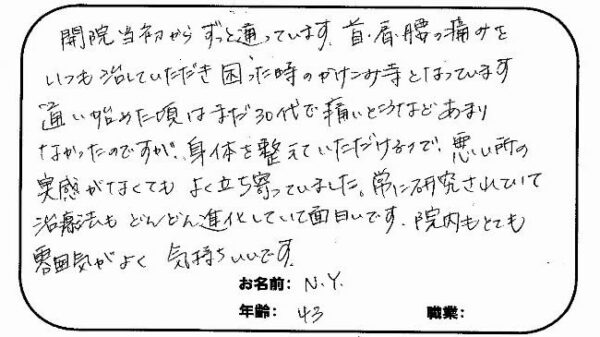 開院当初からずっと通っています。首・肩・腰の痛みを
いつも治していただき困った時のかけこみ寺となっています
通い始めた頃はまだ30代で痛いところなどあまり
なかったのですが、身体を整えていただけるので、悪い所の
実感がなくてもよく立ち寄っていました。常に研究されていて
治療法もどんどん進化していて面白いです。院内もとても
雰囲気がよく気持ちいいです。
お名前： N.Y.
年齢： 43 職業：